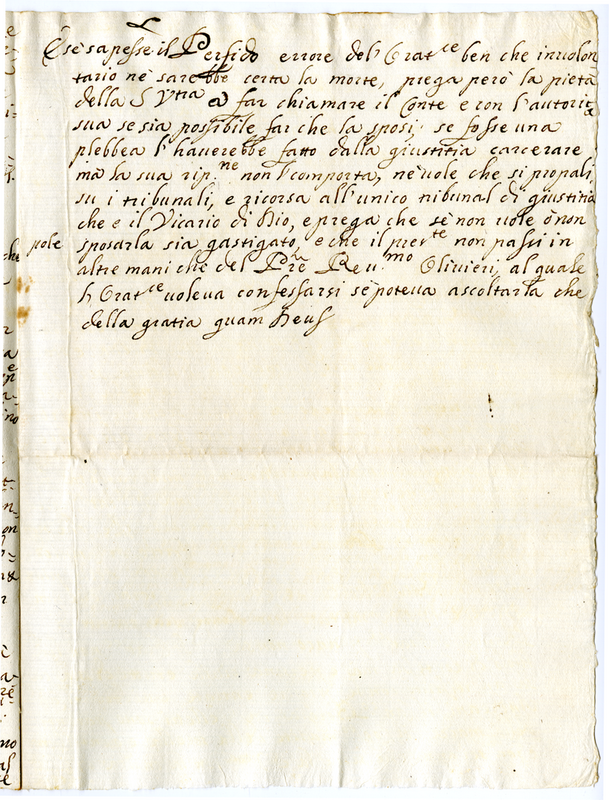 E se sapesse il Perfido errore del' Orat.ce ben che inuolon
tario ne sarebbe certa la morte, prega però la pietà
della S Vtra à far chiamare il Conte e con l'autorità
sua se sia possibile far che la sposi, se fosse una
plebbea l'hauerebbe fatto dalla giustitia carcerare
mà la sua rip.ne non l'comporta, ne uole che si propali
su i tribunali, e ricorsa all'unico tribunal di giustitia
che e il Vicario di Dio, e prega che se non uole ò non
pole sposarla sia gastigato, e che il pnte non passi in
altre mani che del Pre Reu.mo Oliuieri, al quale
l'Orat.ce uoleua confessarsi se poteua ascoltarla che
della gratia quam Deus